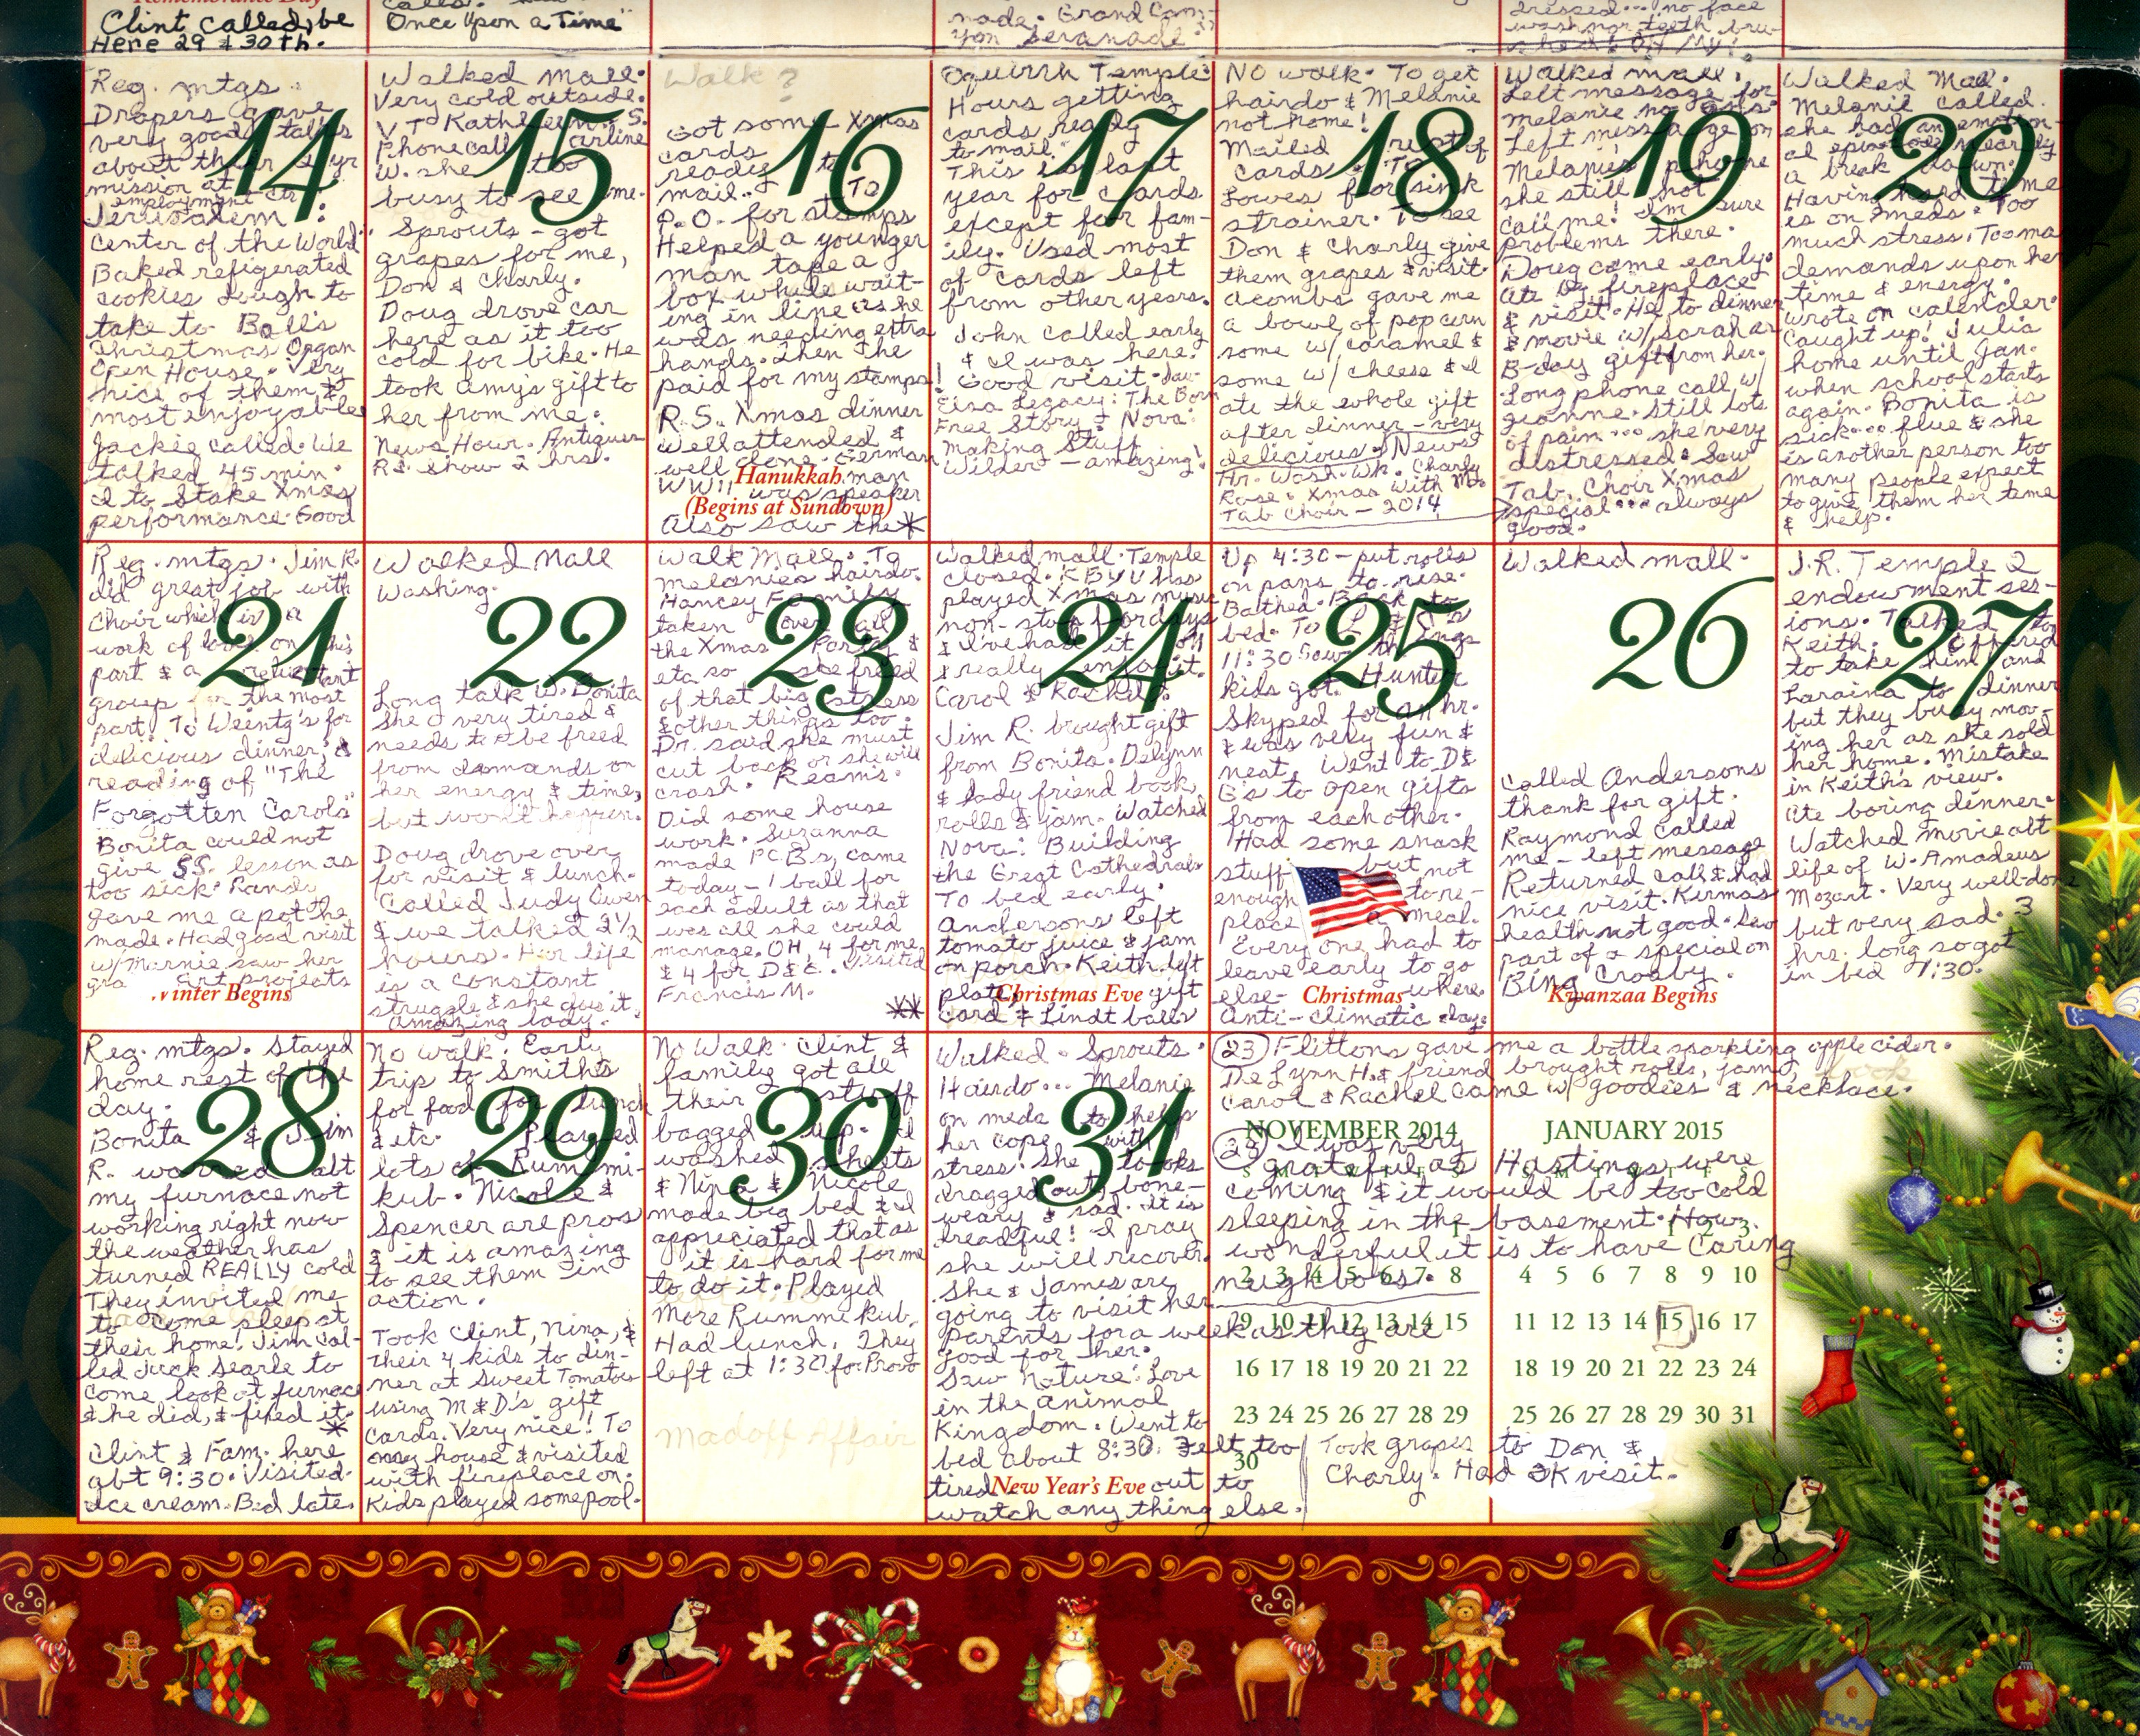 Remembrance Day
Clint called, be
Here 29 & 30th.
Calls.
Once Upon a Time"
made. Grand Can-
yon Seranade.
dressed... no face
wash nor teeth bru-
shed! Oh My!
Reg. mtgs.
Drapers gave
very good talks
about their yr
mission at
employment ctr
Jerusalem:
Center of the World
Baked refigerated
cookies dough to
take to Ball's
Christmas Organ
Open House. Very
nice of them &
most enjoyable
Jackie called. We
talked 45 min.
I to Stake Xmas
performance. Good
14
Walked mall.
Very cold outside.
V T to Kathleen S.
Phone call Carline
W. she too
busy to see me.
Sprouts - got
grapes for me,
Don & Charly.
Doug drove car
here as it too
cold for bike. He
took Amy's gift to
her from me.
News Hour. Antiques
Rd. show 2 hrs.
15
Walk?
Got some Xmas
cards
ready to
mail. To
P.O. for stamps
Helped a younger
man tape a
box while wait-
ing in line as he
was needing extra
hands. Then he
paid for my stamps!
R.S. Xmas dinner
Well attended &
well done. German
man
WWII was speaker
Also saw the *
16
Hanukkah
(Begins at Sundown)
Oquirrh Temple.
Hours getting
cards ready
to mail.
This is last
year for cards
except for fam-
ily. Used most
of cards left
from other years.
John called early
& I was here.
Good visit.
Elsa Legacy: The Born
Free Story & Nova:
Making Stuff
Wilder - amazing!
17
No walk. To get
hairdo & Melanie
not home!
Mailed rest of
cards. To
Lowes for sink
strainer. To see
Don & Charly give
them grapes & visit.
Acombs gave me
a bowl of popcorn
some w/ caramel &
some w/ cheese & I
ate the whole gift
after dinner - very
delicious. News
Hr. Wash. Wk. Charly
Rose. Xmas With Mo.
Tab Choir - 2014
18
Walked mall.
Left message for
Melanie no ans.
Left message on
Melanie's phone
she still not
call me! I'm sure
problems there.
Doug came early.
ate by fireplace
& visit. He to dinner
& movie w/ Sarah as
B-day gift from her.
Long phone call w/
Jeanne. Still lots
of pain... she very
distressed. Saw
Tab. Choir Xmas
special... always
good.
19
Walked Mall.
Melanie called.
she had an emotion-
al episode nearly
a break down.
Having hard time
is on meds. Too
much stress, Too ma
demands upon her
time & energy.
Wrote on calendar.
Caught up! Julia
home until Jan.
when school starts
again. Bonita is
sick... flue & she
is another person too
many people expect
to give them her time
& help.
20
Reg. mtgs. Jim R.
did great job with
Choir which is a
work of love on his
part & a reluctant
group for the most
part. To Weentg's for
delicious dinner &
reading of "The
Forgotten Carols"
Bonita could not
give SS. lesson as
too sick. Randy
gave me a pot he
made. Had good visit
w/ Marnie saw her
gra art projects
21
Winter Begins
Walked Mall
Washing.
Long talk w. Bonita
She very tired &
needs to be freed
from demands on
her energy & time,
but won't happen.
Doug drove over
for visit & lunch.
Called Judy Owen
& we talked 2½
hours. Her life
is a constant
struggle & she gives it.
Amazing lady.
22
Walk Mall. To
Melanies hairdo.
Hancey Family
taken over all
the Xmas Party &
eta so she freed
of that big stress
& other things too.
Dr. said she must
cut back or she will
crash. Reams.
Did some house
work. Suzanna
made P.C.B.s, came
today - 1 ball for
each adult as that
was all she could
manage. OH, 4 for me
& 4 for D & E. Visited
Francis M.
**
23
Walked mall. Temple
closed. KBYU has
played Xmas music
non-stop for days
& I've had it on
& really enjoy it.
Carol & Rachel.
Jim R. brought gift
from Bonita. Delynn
& lady friend book,
rolls & jam. Watched
Nova: Building
the Great Cathedrals
To bed early.
Andersons left
tomato juice & jam
on porch. Keith left
plate gift
card & Lindt balls
24
Christmas Eve
Up 4:30 - put rolls
on pans to rise.
Bathed. Back to
bed. To
11:30 Saw things
kids got. Hunter
Skyped for an hr.
& was very fun &
neat. Went to D &
G's to open gifts
from each other.
Had some snack
stuff but not
enough to re-
place a meal.
Everyone had to
leave early to go
else- where.
Anti-climatic day.
25
Christmas
Walked mall.
Called Andersons
thank for gift.
Raymond called
me - left message
Returned call & had
nice visit. Kirmas
health not good. Saw
part of a special on
Bing Crosby.
26
Kwanzaa Begins
J.R. Temple 2
endowment ses-
ions. Talked to
Keith. Offered
to take him and
Laraina to dinner
but they busy mov-
ing her as she sold
her home. Mistake
in Keith's view.
Ate boring dinner.
Watched movie abt
life of W. Amadeus
Mozart. Very well-done
but very sad. 3
hrs. long so got
in bed 1:30.
27
Reg. mtgs. Stayed
home rest of the
day.
Bonita & Jim
R. worried abt
my furnace not
working right now
the weather has
turned REALLY cold
They invited me
to come sleep at
their home! Jim cal-
led Jack Searle to
come look at furnace
& he did, & fixed it.
*
Clint & Fam. here
abt 9:30. Visited.
Ice cream. Bed late.
28
No walk. Early
trip to Smith's
for food for lunch
& etc. Played
lots of Rummi-
kub. Nicole &
Spencer are pros
& it is amazing
to see them in
action.
Took Clint, Nina, &
their 4 kids to din-
ner at Sweet Tomatoes
using M & D's gift
cards. Very nice! To
my house & visited
with fireplace on.
Kids played some pool.
29
No Walk. Clint &
family got all
their stuff
bagged up. I
washed sheets
& Nina & Nicole
made big bed & I
appreciated that as
it is hard for me
to do it. Played
More Rummikub.
Had lunch. They
left at 1:30 for Provo
Madoff Affair
30
Walked. Sprouts.
Hairdo... Melanie
on meds to help
her cope with
stress. She looks
dragged out, bone-
weary & sad. It is
dreadful! I pray
she will recover.
She & James are
going to visit her
parents for a week as they are
good for her.
Saw Nature: Love
in the animal
Kingdom. Went to
bed about 8:30. Felt too
tired out to
watch anything else.
31
New Year's Eve
(23) Flittons gave me a bottle sparkling apple cider.
DeLynn H. & friend brought rolls, jams,
Carol & Rachel came w/ goodies & necklace.
I was very
grateful as Hastings were
coming & it would be too cold
sleeping in the basement. How
wonderful it is to have caring
neighbors.
NOVEMBER 2014
S M T W T F S
1
2 3 4 5 6 7 8
9 10 11 12 13 14 15
16 17 18 19 20 21 22
23 24 25 26 27 28 29
30
JANUARY 2015
S M T W T F S
1 2 3
4 5 6 7 8 9 10
11 12 13 14 15 16 17
18 19 20 21 22 23 24
25 26 27 28 29 30 31
Took grapes to Don &
Charly. Had OK visit.